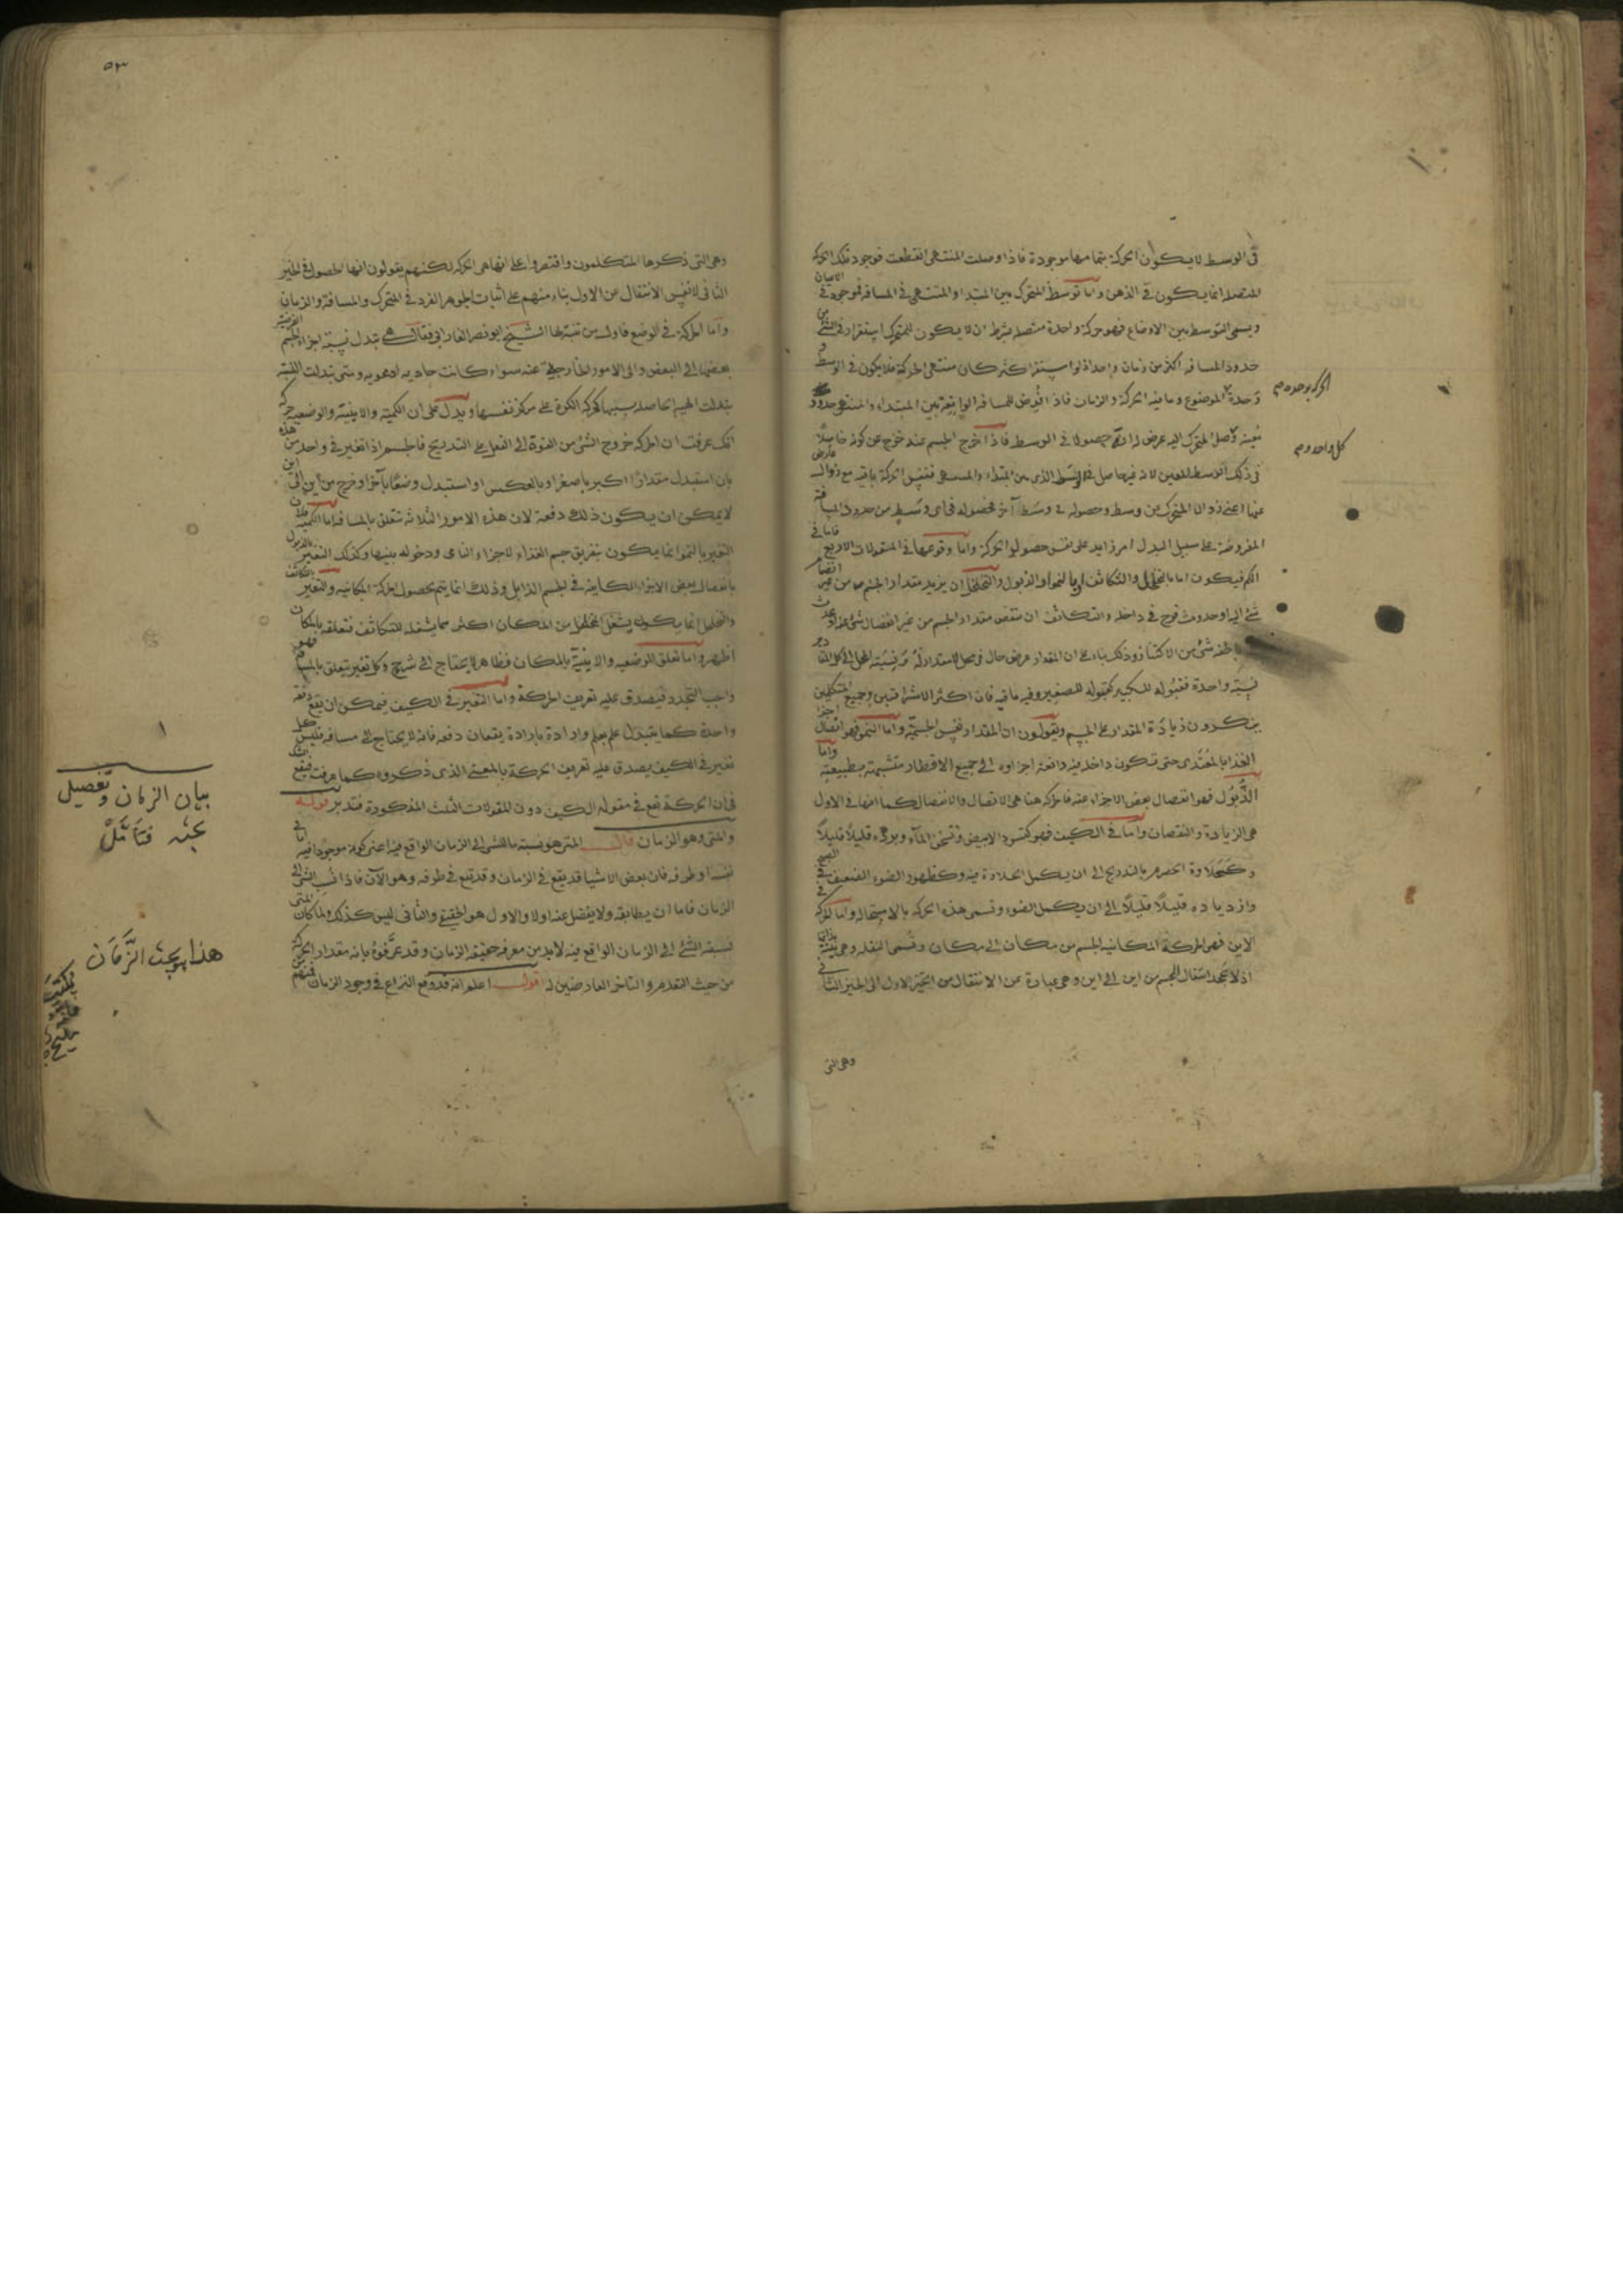 في الوسط لا يكون الحركة بتمامها موجودة فاذا وصلت المنتهى انقطعت فوجود تلك الحركة
المتصلة انما يكون في الذهن واما توسط المتحرك بين المبتدا والمنتهى في المسافة فموجود في الاعيان
ويسمى التوسط بين الاوضاع فهو حركة واحدة متصلة بشرط ان لا يكون للمتحرك استقرار في شئ من
حدود المسافة اكثر من زمان واحد اذ لو استقر اكثر كان منتهى الحركة فلا يكون في الوسط و
وحدة الموضوع وما فيه الحركة والزمان فاذا فرض للمسافة الواقعة بين المبتداء والمنتهى حدود
الحركة بوحدة م
معينة وصل المتحرك اليه عرض له انه حصول في الوسط فاذا خرج الجسم عنه خرج عن كونه حاصلا
كل واحد م
في ذلك الوسط المعين لانه فيها صل في الوسط الذي بين المبتداء والمنتهى فنفس الحركة باقية مع زوال عارض
عنها اعني زوال المتحرك من وسط وحصوله في وسط آخر فحصوله في اي وسط من حدود المسافة
المفروضة على سبيل البدل امر زايد على نفس حصول الحركة واما وقوعها في المقولات الاربع فاما في
الكم فيكون اما بالتخلخل والتكاثف او بالنمو والذبول والتخلخل ان يزيد مقدار الجسم من غير انضمام
شئ اليه او حدوث فرج في داخله والتكاثف ان ينقص مقدار الجسم من غير انفصال شئ
شئ من الاكتناز وذلك بناء على ان المقدار عرض حال في محل لا مقدار له ونسبة المحل الى كل المقادير
نسبة واحدة فقبوله للكبير كقبوله للصغير وفيه ما فيه فان اكثر الاشراقيين وجميع المتكلمين
ينكرون زيادة المقدار على الجسم ويقولون ان المقدار نفس الجسمية واما النمو فهو اتصال اجزا
الغذا بالمغتذى حتى تكون داخلة فيه دافعة اجزاوه الى جميع الاقطار متشبهة بطبيعته واما
الذبول فهو انفصال بعض الاجزاء عنه فالحركة هنا هي الاتصال والانفصال كما انها في الاول
هي الزيادة والنقصان واما في الكيف فهو كتسود الابيض وتسخن الماء وبرده قليلا قليلا
وكحلاوة الحصرم بالتدريج الى ان يكمل الحلاوة فيه وكظهور الضوء الضعيف في الصبح
وازدياده قليلا قليلا الى ان يكمل الضوء وتسمى هذه الحركة بالاستحالة واما الحركة في
الاين فهي الحركة المكانية للجسم من مكان الى مكان وتسمى النقلة وهي بينة بذاتها
اذ لا نجد انتقال الجسم من اين الى اين وهي عبارة عن الانتقال من الحيز الاول الى الحيز الثاني
وهي التي
٥٣
وهي التي ذكرها المتكلمون واقتصروا على انها هي الحركة لكنهم يقولون انها الحصول في الحيز
الثاني لا نفس الانتقال عن الاول بناء منهم على اثبات الجوهر الفرد في المتحرك والمسافة والزمان
واما الحركة في الوضع فاول من تنبه لها الشيخ ابو نصر الفارابي فقال هي تبدل نسبة اجزاء الجسم
بعضها الى البعض والى الامور الخارجة عنه سواء كانت حاوية او محوية ومتى تبدلت النسبة
تبدلت الهيئة الحاصلة بسببها كحركة الكرة على مركز نفسها ويدل على ان الكمية والاينية والوضعية حركة
انك عرفت ان الحركة خروج الشئ من القوة الى الفعل على التدريج فالجسم اذا تغير في واحد من هذه
بان استبدل مقدارا اكبر باصغر او بالعكس او استبدل وضعا بآخر او خرج من اين الى اين
لا يمكن ان يكون ذلك دفعة لان هذه الامور الثلاثة تتعلق بالمسافة اما الكمية فلان
التغير بالنمو انما يكون بتفريق جسم الغذاء لاجزاء النامي ودخوله بينها وكذلك التغير بالذبول
بانفصال بعض الاجزاء الكاينة في الجسم الذابل وذلك انما يتم بحصول الحركة المكانية والتغير بالتكاثف
والتخلخل انما يكون يشغل المتخلخل من المكان اكثر مما يشغله المتكاثف فتعلقه بالمكان
اظهر واما تعلق الوضعية والاينية بالمكان فظاهر لا يحتاج الى شرح وكل تغير يتعلق بالمسافة فهو
واجب التجدد فيصدق عليه تعريف الحركة واما التغير في الكيف فيمكن ان يقع دفعة
واحدة كما يتبدل علم بعلم وارادة بارادة يقعان دفعة فانه لا يحتاج الى مسافة فليس كل
تغير في الكيف يصدق عليه تعريف الحركة بالمعنى الذي ذكروه كما عرفت فيقع
في ان الحركة تقع في مقولة الكيف دون المقولات الثلث المذكورة فتدبر قوله
والمتى وهو الزمان قال المتى هو نسبة ما للشئ الى الزمان الواقع فيه اعني كونه موجودا فيه
نفسه او طرفه فان بعض الاشيا قد يقع في الزمان وقد تقع في طرفه وهو الآن فاذا نسب الشئ الى
الزمان فاما ان يطابقه ولا يفضل عنه اولا والاول هو الحقيقي والثاني ليس كذلك ولما كان المتى
نسبة الشئ الى الزمان الواقع فيه لابد من معرفة حقيقة الزمان وقد عرفوه بانه مقدار الحركة
من حيث التقدم والتاخر العارضين له اقول اعلم انه قد وقع النزاع في وجود الزمان فمنهم من
١
بيان الزمان وتفصيل
عنه فتأمل
هذا مبحث الزمان